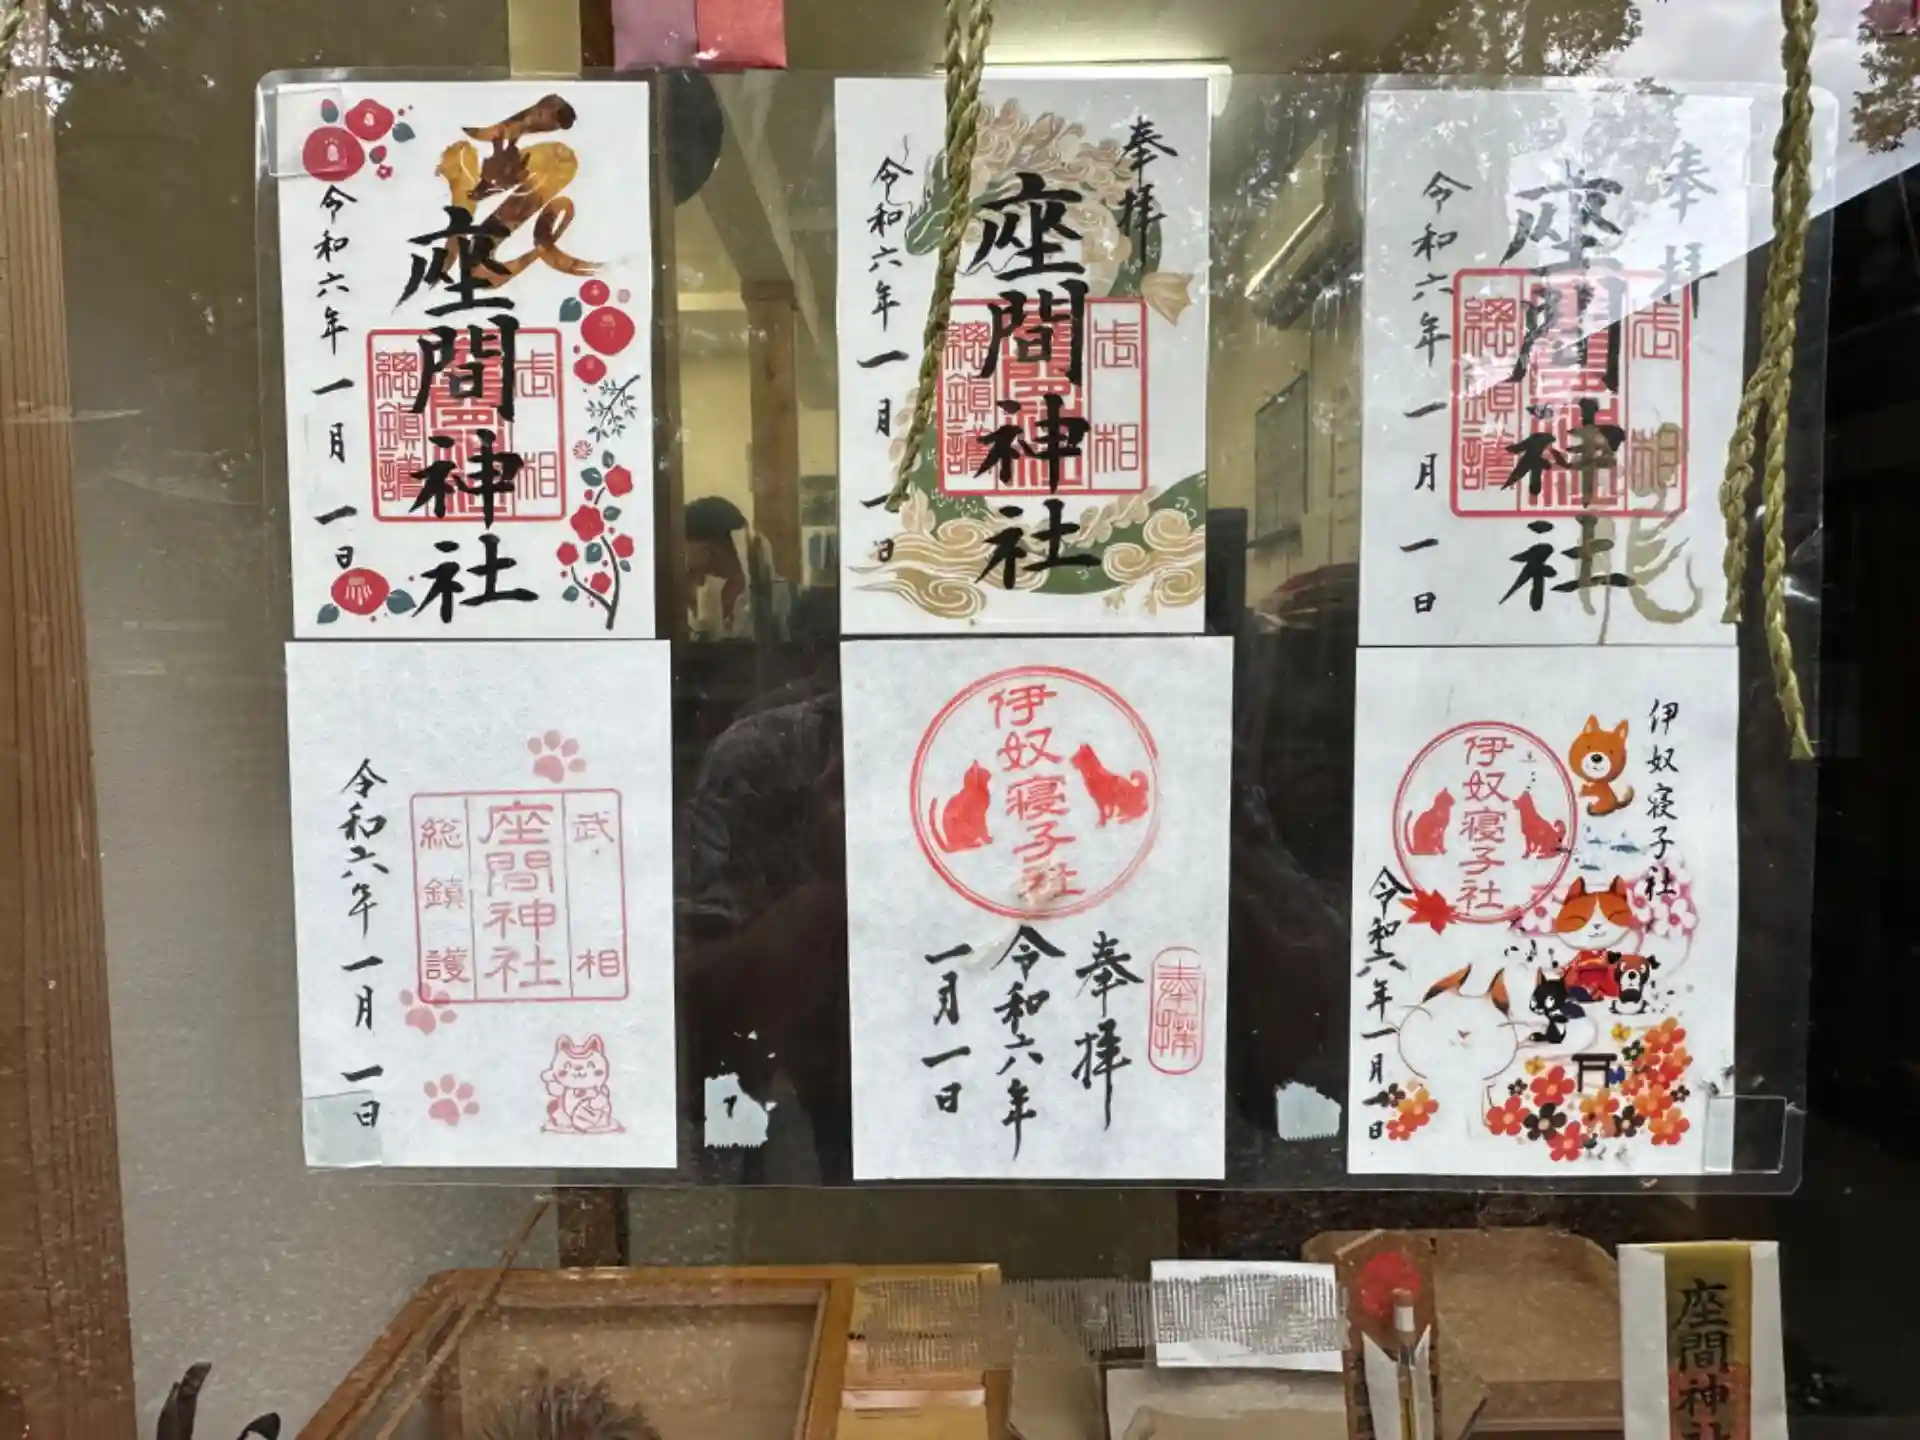 辰
座間神社
武相
總鎮護
令和六年一月一日
奉拝
座間神社
武相
總鎮護
令和六年一月一日
奉拝
座間神社
武相
總鎮護
令和六年一月一日
武相
座間神社
総鎮護
令和六年一月一日
伊奴寝子社
奉拝
奉拝
令和六年
一月一日
伊奴寝子社
伊奴寝子社
令和六年一月一日
座間神社